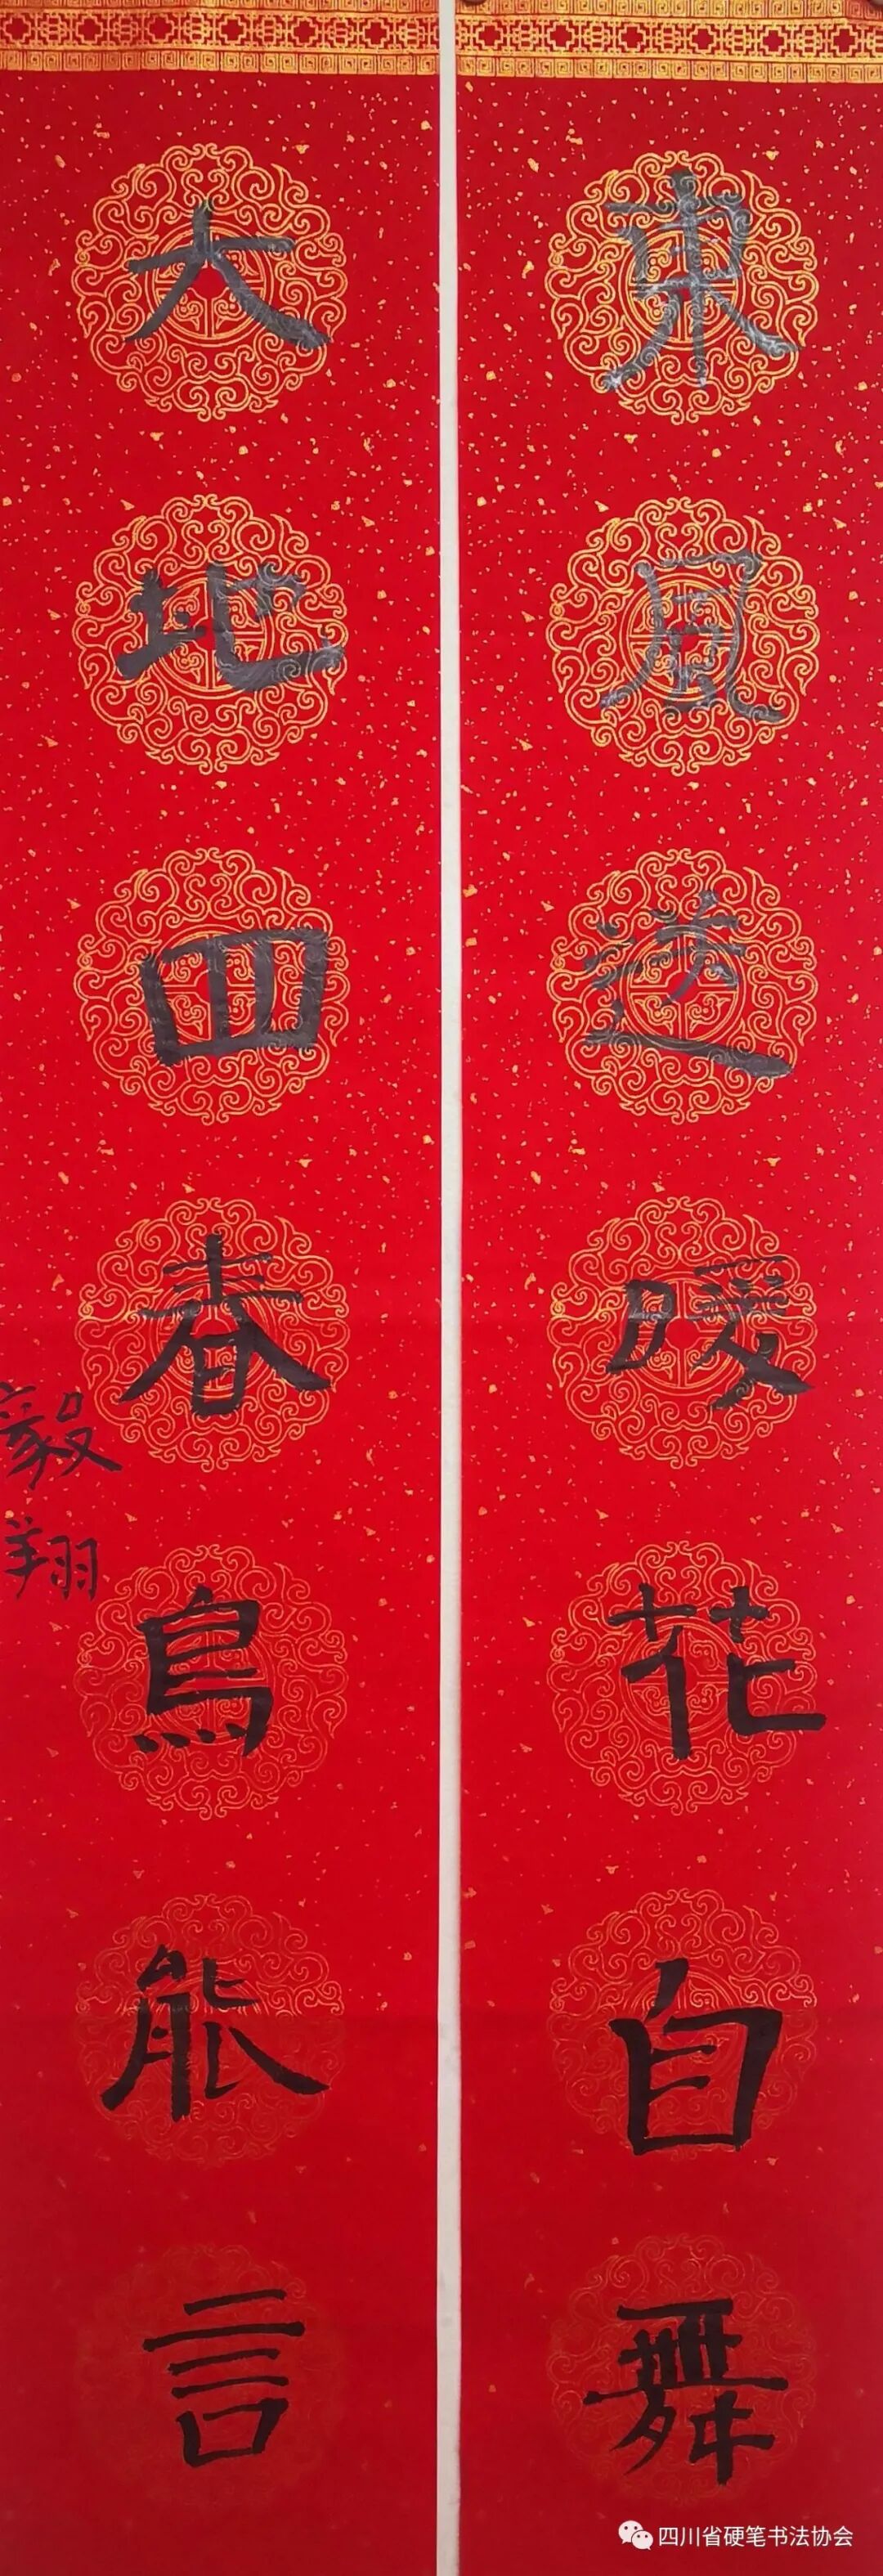 東風送暖花自舞
大地四春鳥能言
毅翔
四川省硬笔书法协会